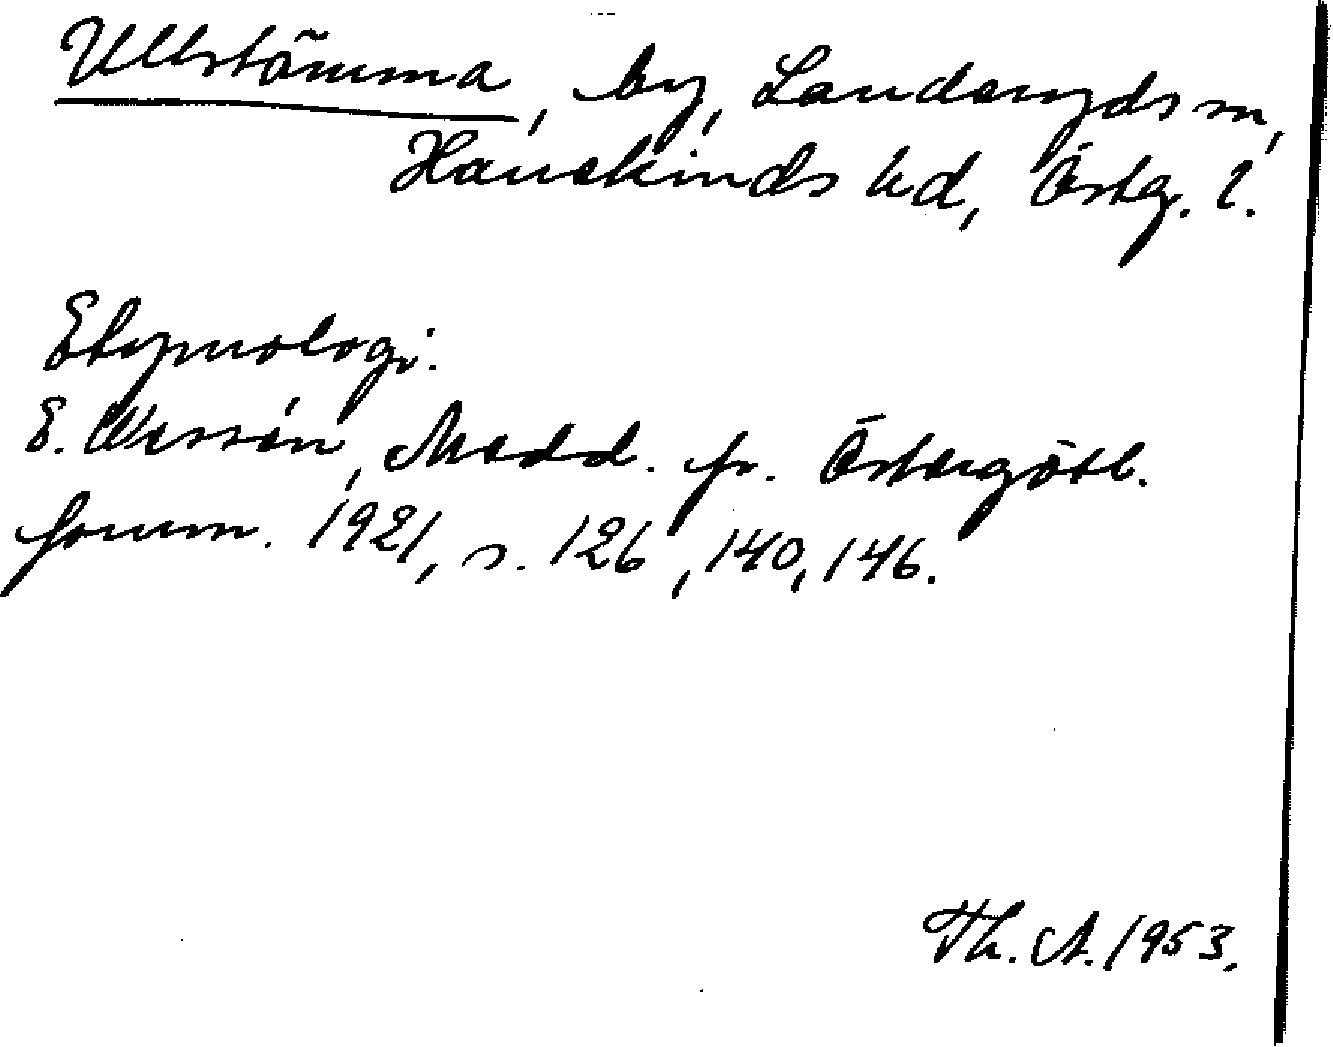 Ullstämma, by, Landeryds sn,
Hanekinds hd, Östg. l.
Etymologi.
E. Wessén, Medd. fr. Östergötl.
fornm. 1921, s. 126, 140, 146.
Th. A. 1953.